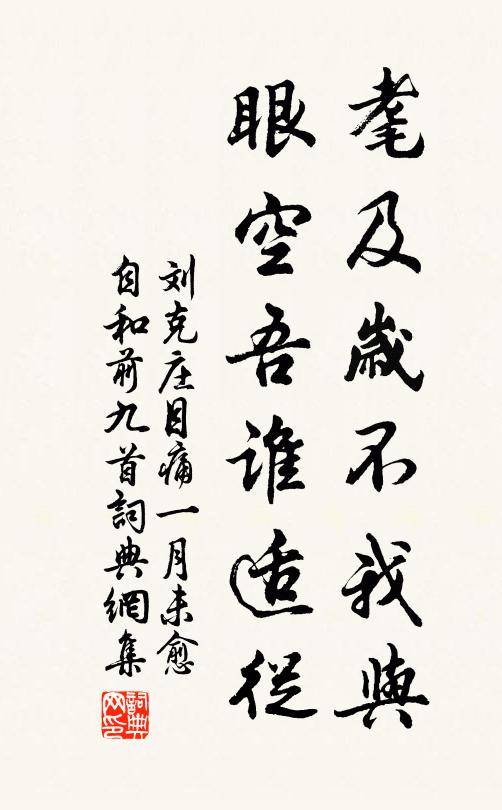 耄及歲不我與
眼空吾誰适從
刘克庄目痛一月未愈
自和前九首詞典網集
詞典网印